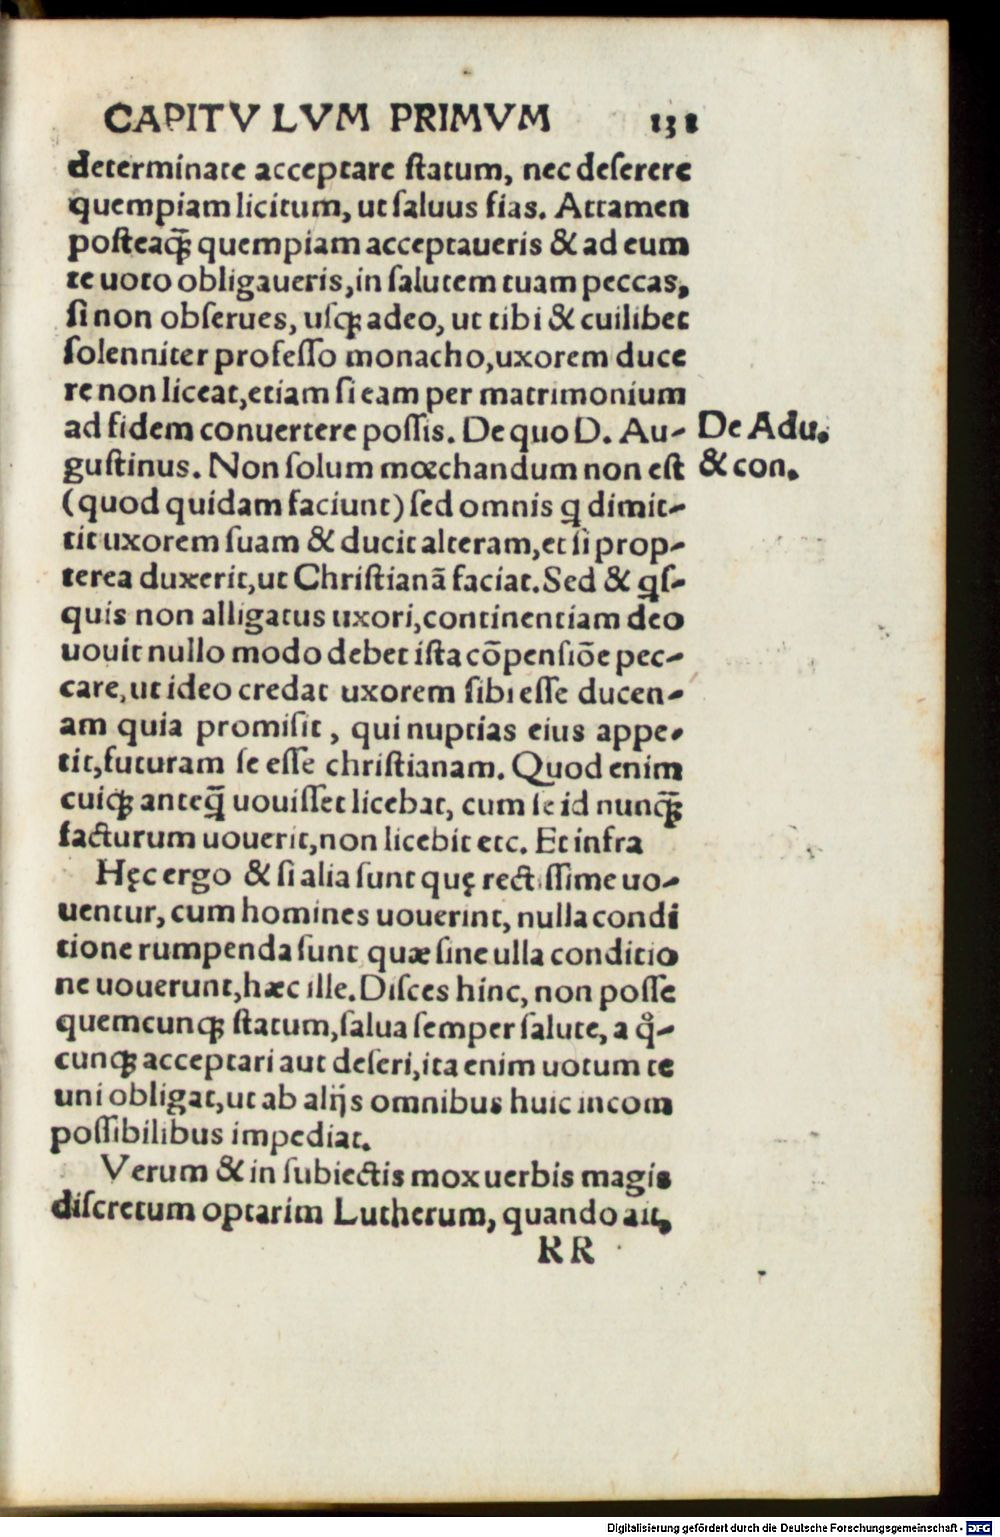 CAPITV LVM PRIMVM 131
determinate acceptare ſtatum, nec deſerere
quempiam licitum, ut ſaluus fias. Attamen
poſteaꝙ̃ quempiam acceptaueris & ad eum
te uoto obligaueris, in ſalutem tuam peccas,
ſi non obſerues, uſqꝫ adeo, ut tibi & cuilibet
ſolenniter profeſſo monacho, uxorem duce
re non liceat, etiam ſi eam per matrimonium
ad fidem conuertere poſſis. De quo D. Au- De Adu.
guſtinus. Non ſolum mœchandum non eſt & con.
(quod quidam faciunt) ſed omnis q dimit-
tit uxorem ſuam & ducit alteram, et ſi prop-
terea duxerit, ut Chriſtianã faciat. Sed & qſ-
quis non alligatus uxori, continentiam deo
uouit nullo modo debet iſta cõpenſiõe pec-
care, ut ideo credat uxorem ſibi eſſe ducen-
am quia promiſit, qui nuptias eius appe-
tit, futuram ſe eſſe chriſtianam. Quod enim
cuiqꝫ anteq̃ uouiſſet licebat, cum ſe id nunꝙ̃
facturum uouerit, non licebit etc. Et infra
Hęc ergo & ſi alia ſunt quę rectiſſime uo-
uentur, cum homines uouerint, nulla condi
tione rumpenda ſunt quæ ſine ulla conditio
ne uouerunt, hæc ille. Diſces hinc, non poſſe
quemcunqꝫ ſtatum, ſalua ſemper ſalute, a qͦ-
cunqꝫ acceptari aut deſeri, ita enim uotum te
uni obligat, ut ab alijs omnibus huic incom
poſſibilibus impediat.
Verum & in ſubiectis mox uerbis magis
diſcretum optarim Lutherum, quando ait,
RR
Digitalisierung gefördert durch die Deutsche Forschungsgemeinschaft - DFG